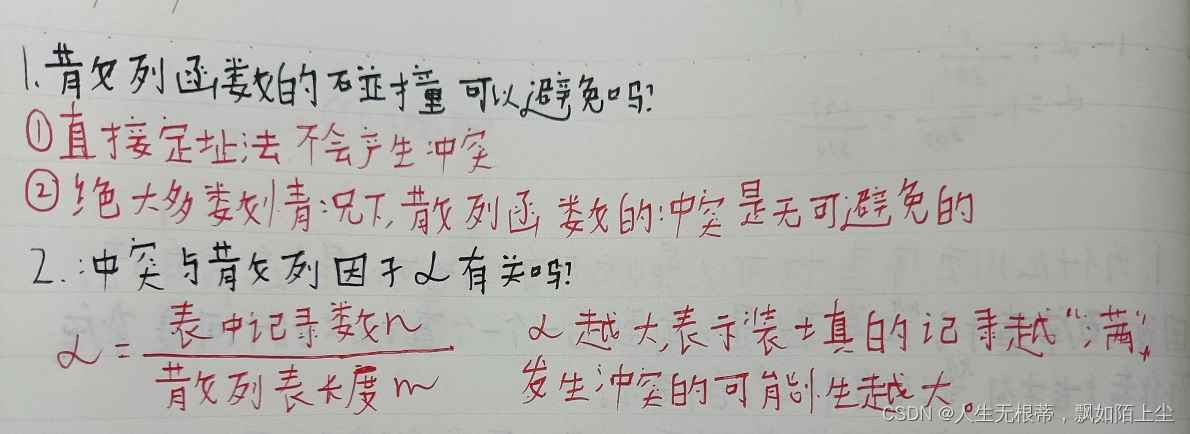 1.散列函数的碰撞可以避免吗?
①直接定址法不会产生冲突
②绝大多数情况下,散列函数的冲突是无可避免的
2.冲突与散列因子α有关吗?
α=表中记录数n/散列表长度m
α越大,表示装填的记录越“满”,
发生冲突的可能性越大。
CSDN @人生无根蒂，飘如陌上尘